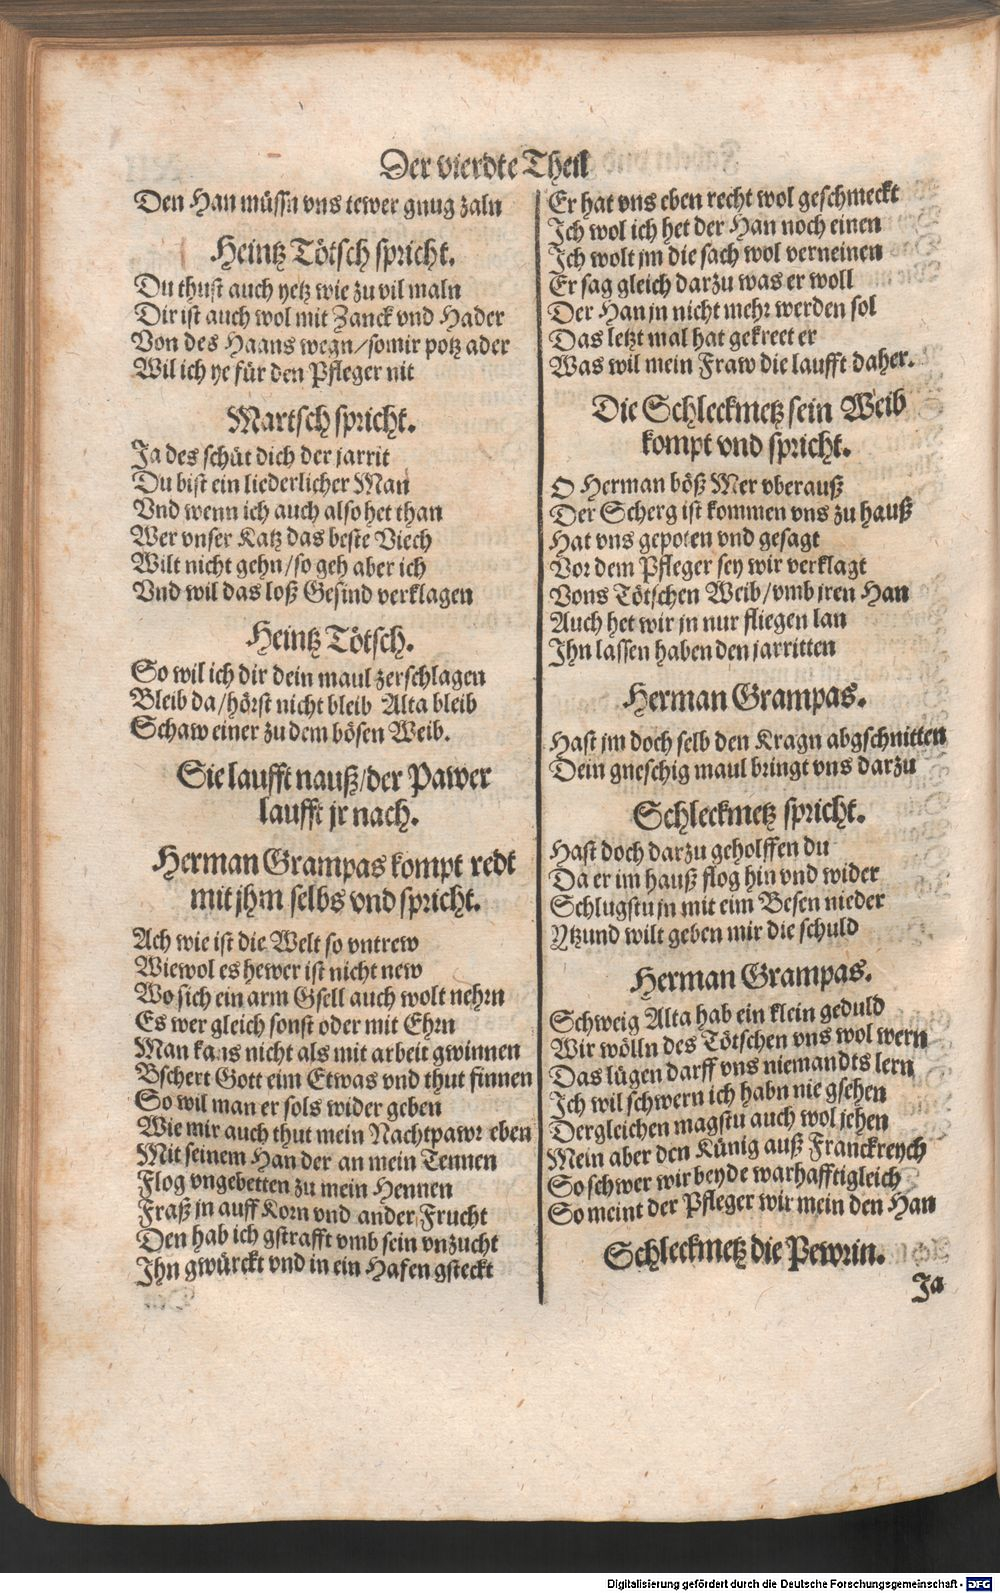 Der vierdte Theil
Den Han müssn vns tewer gnug zaln
Heintz Tötsch spricht.
Du thust auch yetz wie zu vil maln
Dir ist auch wol mit Zanck vnd Hader
Von des Haans wegn/somir potz ader
Wil ich ye für den Pfleger nit
Martsch spricht.
Ja des schüt dich der jarrit
Du bist ein liederlicher Man
Vnd wenn ich auch also het than
Wer vnser Katz das beste Viech
Wilt nicht gehn/so geh aber ich
Vnd wil das loß Gesind verklagen
Heintz Tötsch.
So wil ich dir dein maul zerschlagen
Bleib da/hörst nicht bleib Alta bleib
Schaw einer zu dem bösen Weib.
Sie laufft nauß/der Pawer
laufft jr nach.
Herman Grampas kompt redt
mit jhm selbs vnd spricht.
Ach wie ist die Welt so vntrew
Wiewol es hewer ist nicht new
Wo sich ein arm Gsell auch wolt nehrn
Es wer gleich sonst oder mit Ehrn
Man kans nicht als mit arbeit gwinnen
Bschert Gott eim Etwas vnd thut finnen
So wil man er sols wider geben
Wie mir auch thut mein Nachtpawr eben
Mit seinem Han der an mein Tennen
Flog vngebetten zu mein Hennen
Fraß jn auff Korn vnd ander Frucht
Den hab ich gstrafft vmb sein vnzucht
Ihn gwürckt vnd in ein Hafen gsteckt
Er hat vns eben recht wol geschmeckt
Ich wol ich het der Han noch einen
Ich wolt jm die sach wol verneinen
Er sag gleich darzu was er woll
Der Han jn nicht mehr werden sol
Das letzt mal hat gekreet er
Was wil mein Fraw die laufft daher.
Die Schleckmetz sein Weib
kompt vnd spricht.
O Herman böß Mer vberauß
Der Scherg ist kommen vns zu hauß
Hat vns gepoten vnd gesagt
Vor dem Pfleger sey wir verklagt
Vons Tötschen Weib/vmb jren Han
Auch het wir jn nur fliegen lan
Ihn lassen haben den jarritten
Herman Grampas.
Hast jm doch selb den Kragn abgschnitten
Dein gneschig maul bringt vns darzu
Schleckmetz spricht.
Hast doch darzu geholffen du
Da er im hauß flog hin vnd wider
Schlugstu jn mit eim Besen nieder
Ytzund wilt geben mir die schuld
Herman Grampas.
Schweig Alta hab ein klein geduld
Wir wölln des Tötschen vns wol wern
Das lügen darff vns niemandts lern
Ich wil schwern ich habn nie gsehen
Dergleichen magstu auch wol jehen
Mein aber den Künig auß Franckreych
So schwer wir beyde warhafftigleich
So meint der Pfleger wir mein den Han
Schleckmetz die Pewrin.
Ja
Digitalisierung gefördert durch die Deutsche Forschungsgemeinschaft - DFG